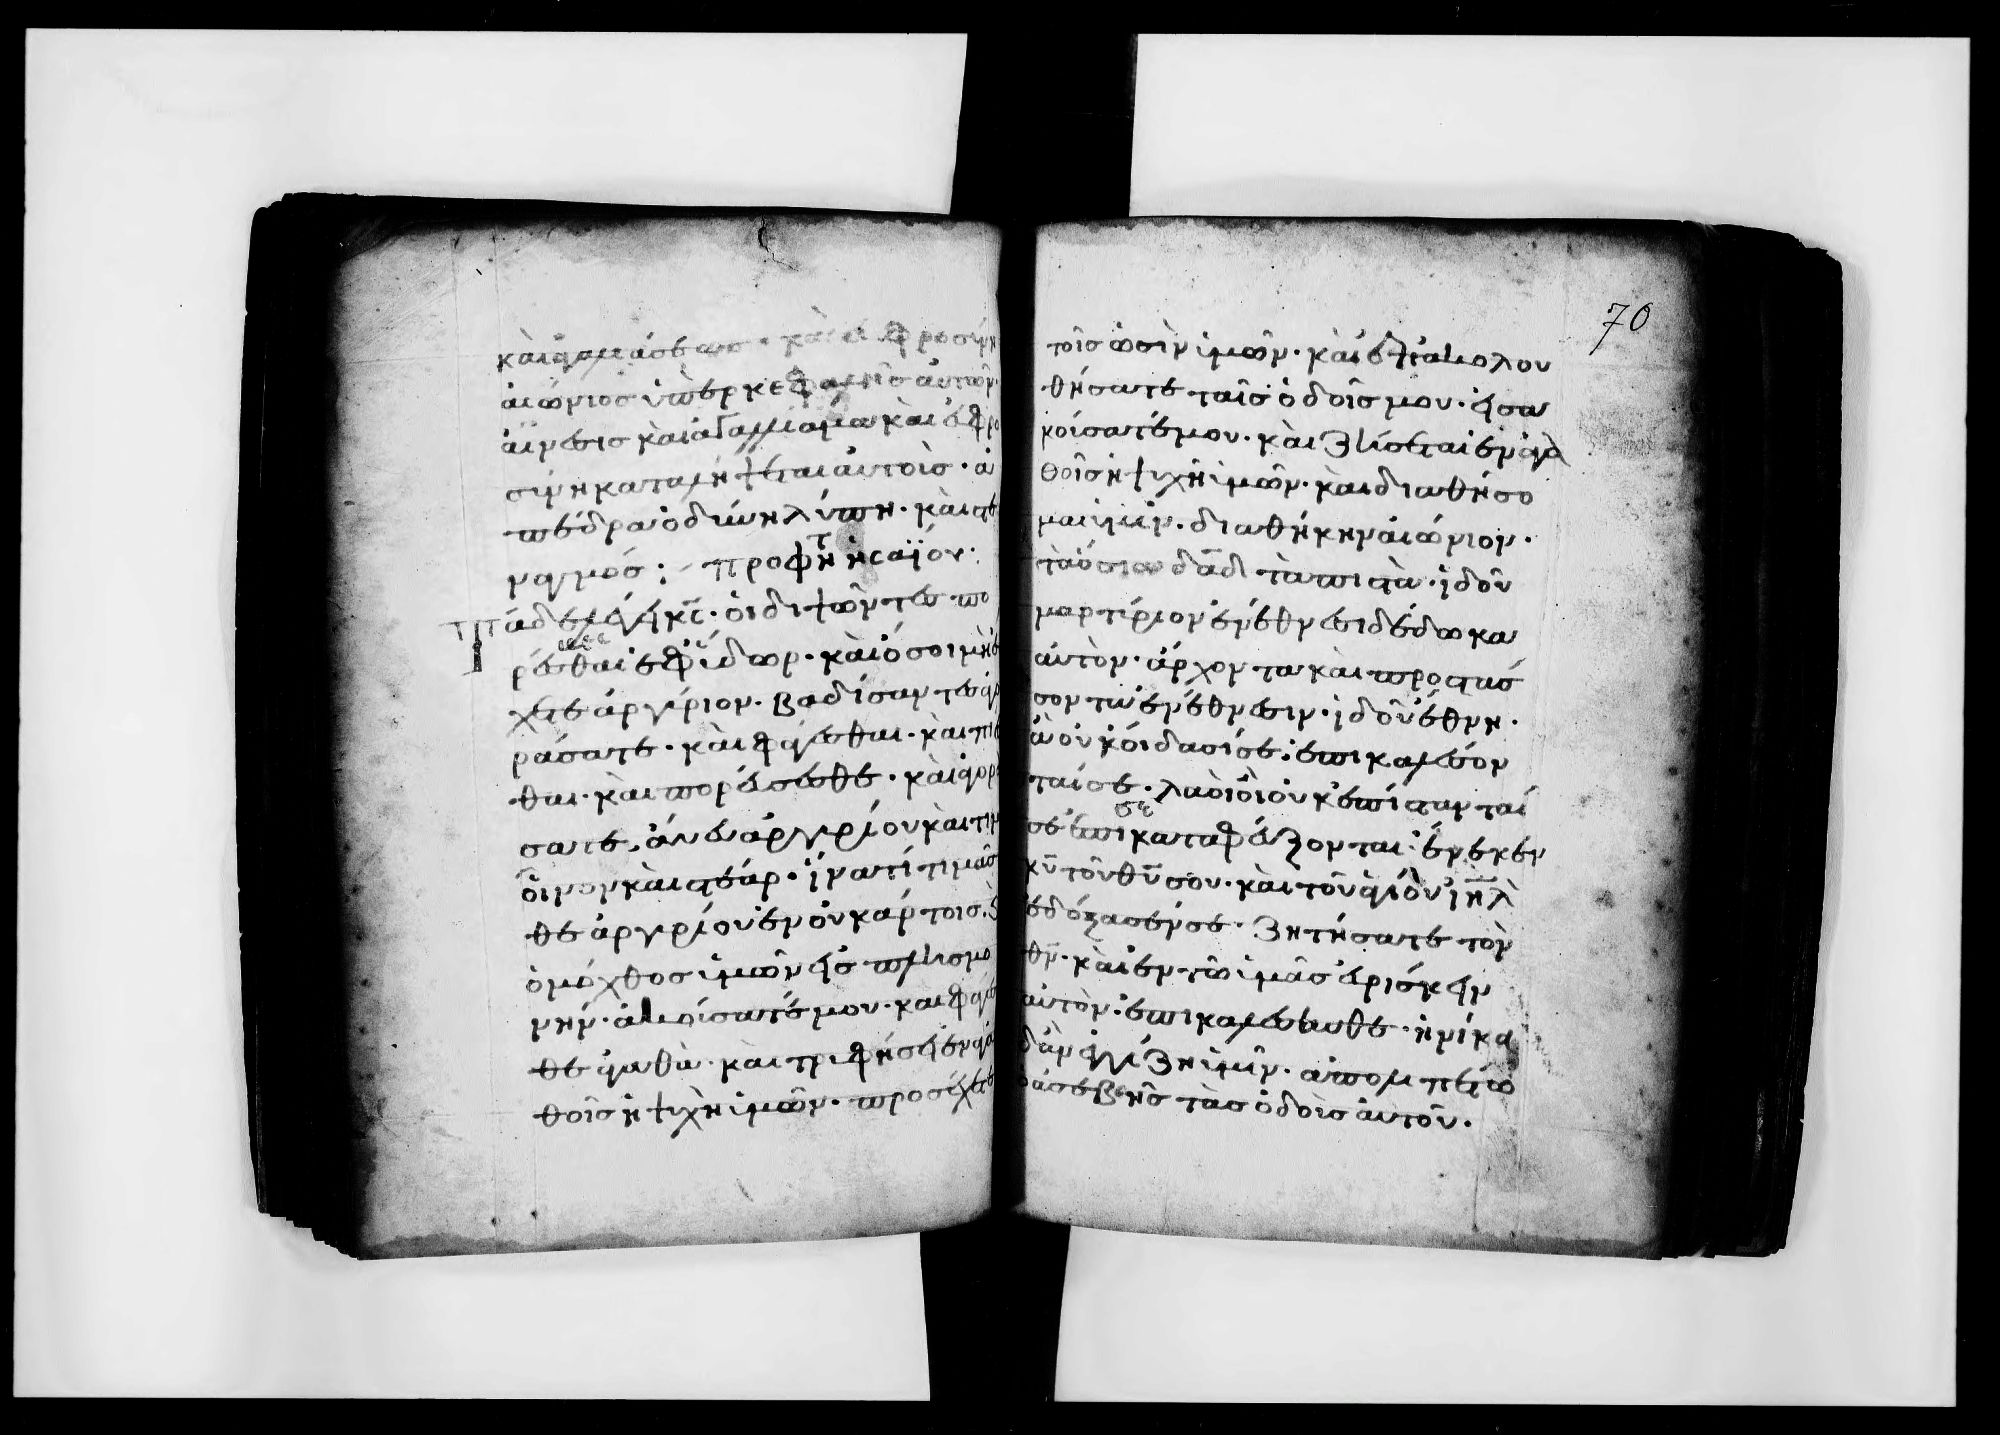 καὶ ἀγαλιάσεως· καὶ εὐφροσύνη
αἰώνιος ὑπὲρ κεφαλῆς αὐτῶν·
αἴνεσις καὶ ἀγαλλίαμα καὶ εὐφρο
σύνη καταλήψεται αὐτοὶσ· ἀ
πέδρα ὀδύνη λύπη· καὶ στε
ναγμόσ: προφητ ἠσαϊόυ·
Τάδε λέγει κς· οἱ διψῶντες πο
ρέυεσθαι ἐφ ὕδωρ· καὶ όσοι μὴ ἐ
χετε ἀργύριον· βαδίσαντες ἀγο
ράσατε· καὶ φάγεσθαι· καὶ πίε
θαι· καὶ πορέυεσθε· καὶ ἀγορα
σατε· άνευ ἀργυρίου καὶ τιμ
οἶνον καὶ στέαρ· ἵνατί τιμᾶσ
θε ἀργυρίου ἐν ὀυκ άρτοισ·
ὁ μόχθοσ ἱμῶν εἰσ πλισμο
νήν· ἀκούσατέ μου· καὶ φάγεσ
θε ἀγαθὰ· καὶ τριφήσει ἐν ἀγα
θοῖσ ἡ ψυχὴ ἱμῶν· προσέχετε
70
τοῖσ ὠσὶν ἱμῶν· καὶ επακολου
θήσατε ταῖσ ὁδοῖσ μου· εἰσα
κόυσατέ μου· καὶ ζήσεται ἐν ἀγα
θοῖσ ἡ ψυχὴ ἱμῶν· καὶ διαθήσο
μαι ἱμῖν· διαθήκην αἰώνιον·
τὰ όσια δᾱδ τὰ πιστὰ· ἰδοῦ
μαρτύριον ἐν έθνεσι δέδωκα
αὐτὸν· άρχοντα καὶ προστάσ
σοντα ἐν έθνεσιν· ἰδοῦ έθνη·
ἁ ὀυκ όιδασί σε· ἐπικαλέσον
ταί σε· λαοὶ οἱ ὀυκ ἐπίστανταί
σε ἐπι σε καταφέυξονται· ἕνεκεν
κῡ τοῦ θῡ σου· καὶ τοῦ ἁγίου ἰηλ
ἐδόξασέν σε· Ζητήσατε τὸν
θν̄· καὶ ἐν τῶ ἱμᾶσ ἑυρίσκειν
αὐτὸν· ἐπικαλέσασθε· ἡνίκα
δὰν ἐγγίζη ἱμῖν· ἀπολιπέτω
ὁ ἀσεβῆσ τὰσ ὁδοὺσ αὐτοῦ·